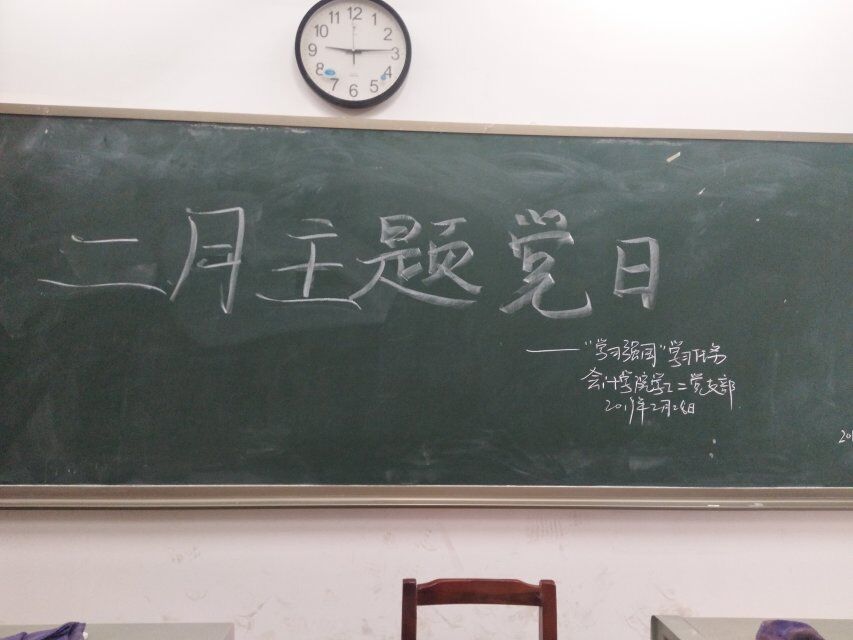 12
11 1
10 2
9 3
8 4
7 5
6
二月主题党日
——"学习强国"学习任务
会计学院学工二党支部
2019年2月28日
201